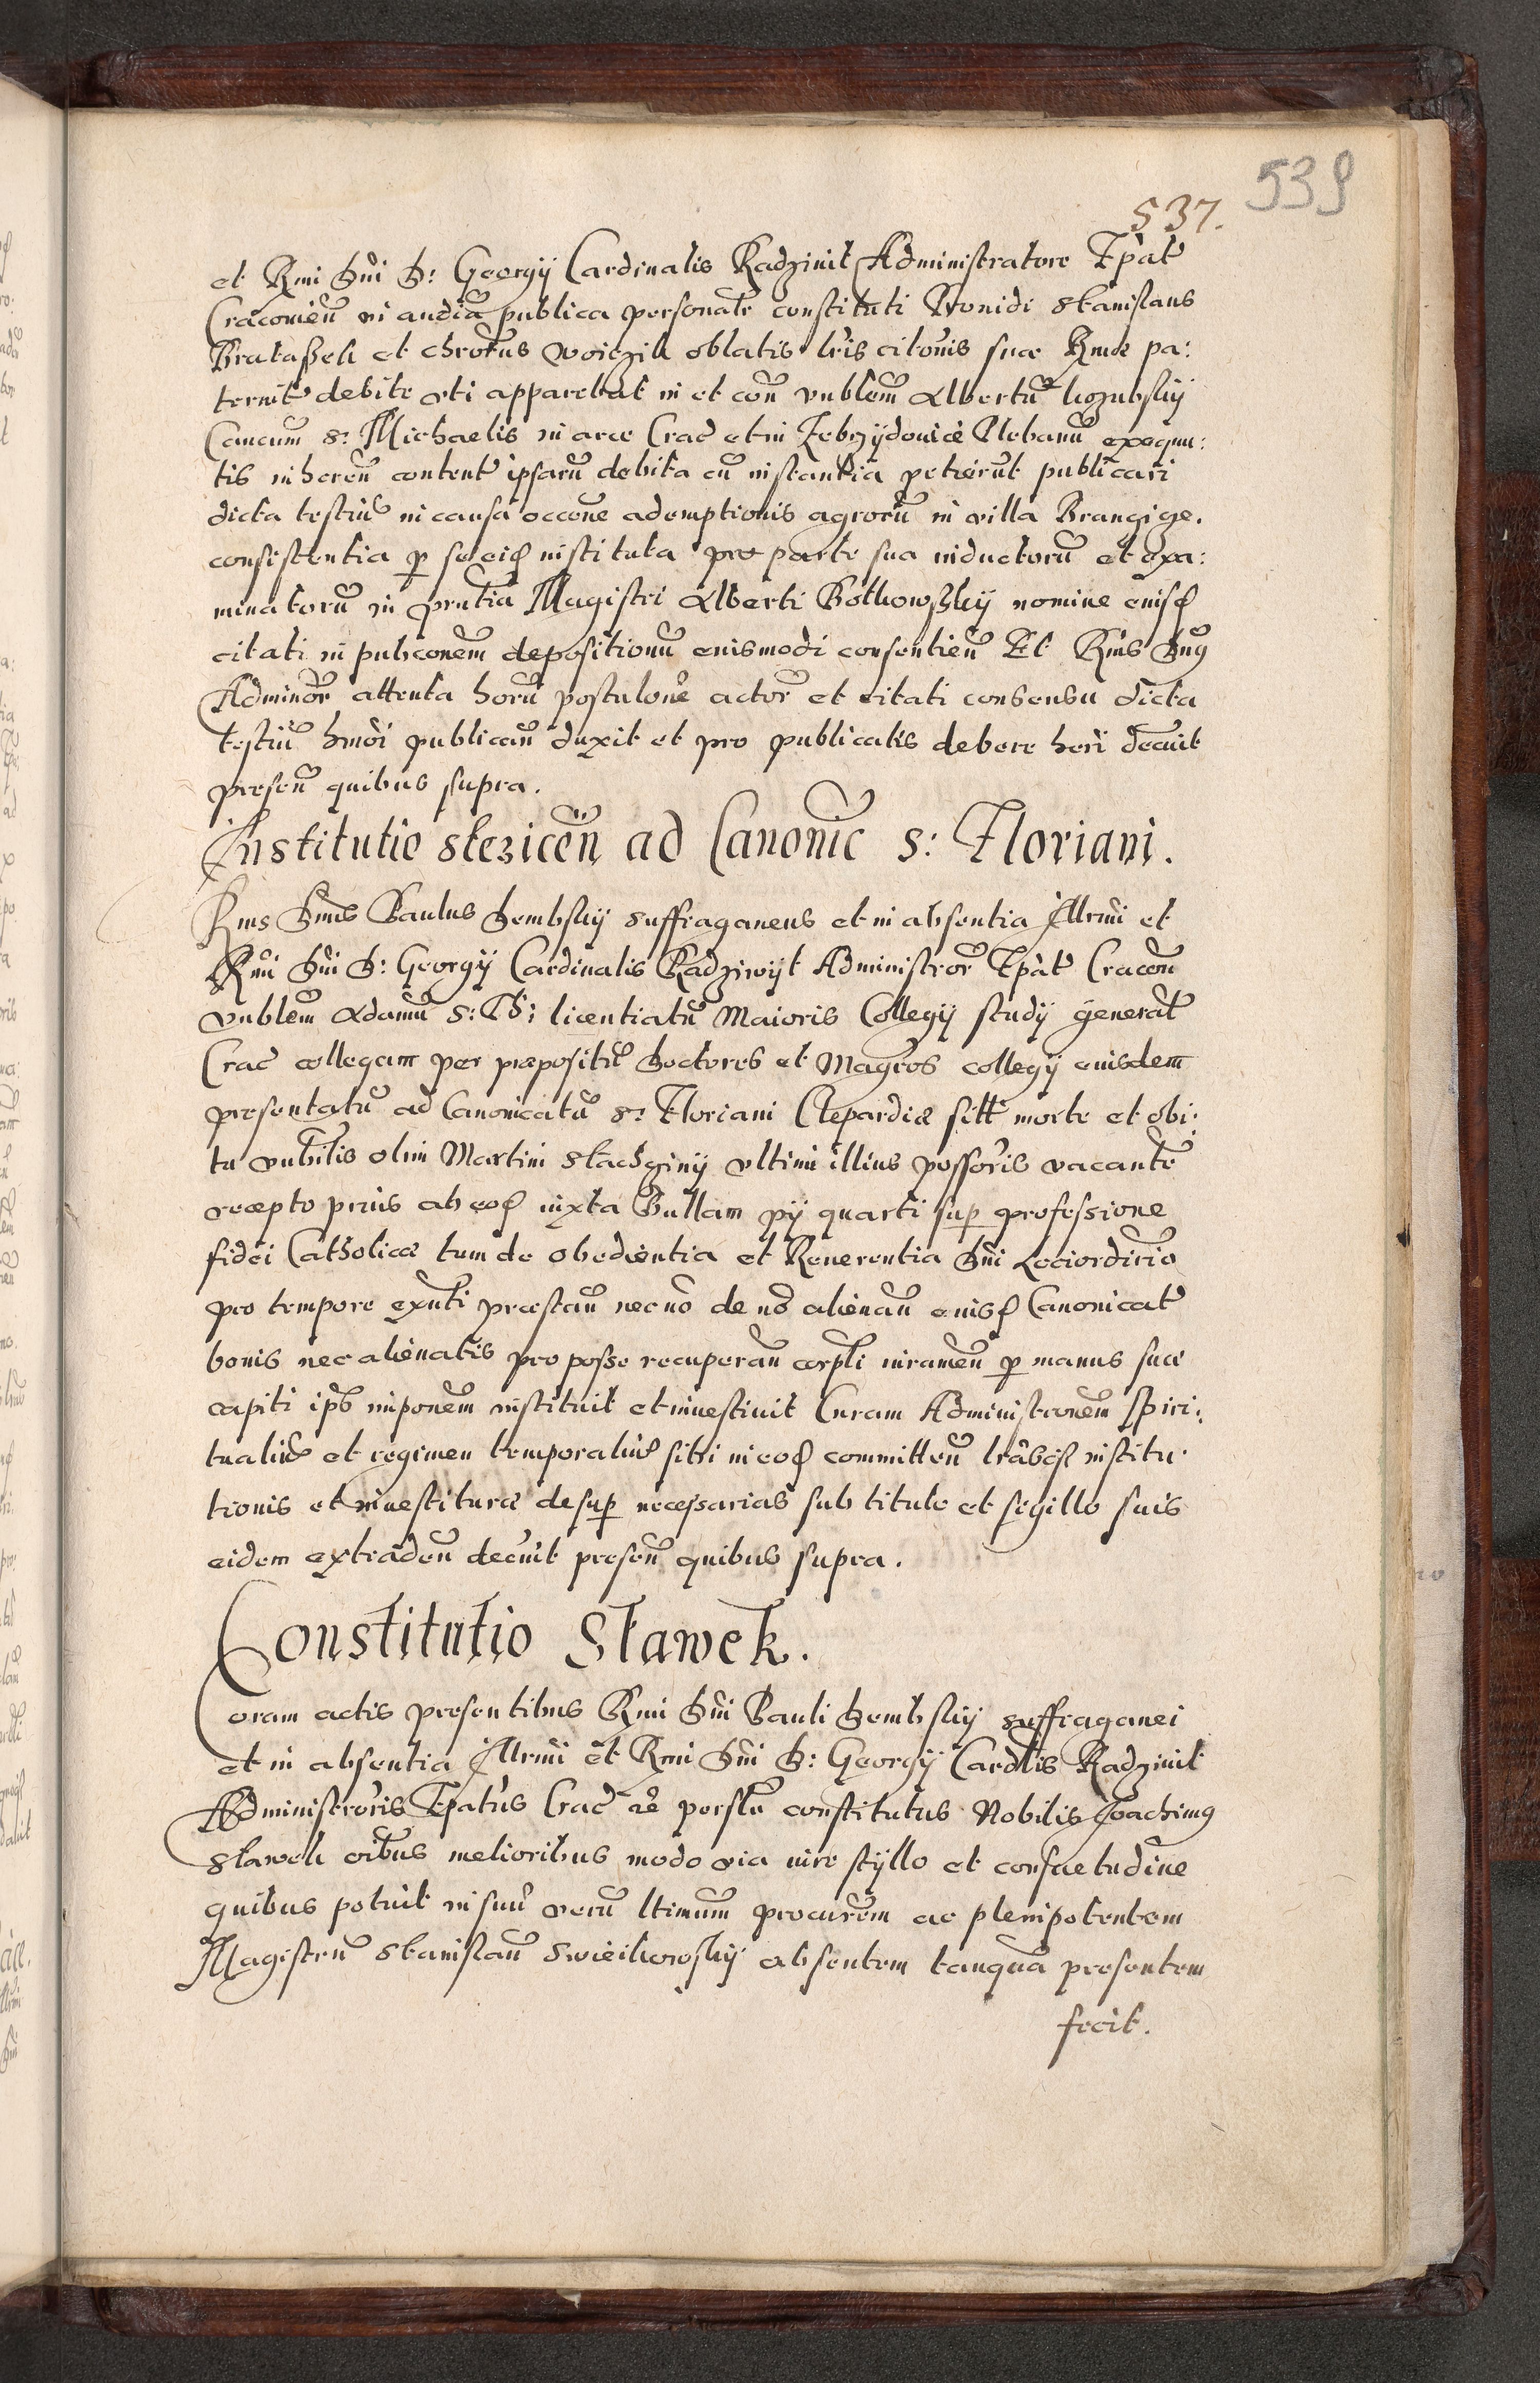 539
537.
et Rmi Dni D: Georgÿ Cardinalis Radziuil Administratore Epat
Cracouien in audia publica personalr constituti Prouidi Stanislaus
Brataßek et Chrotus Woitzik oblatis lris citouis suae Rmae pa:
ternit debite vti apparebat in et con vnblem Albertu kozubskÿ
Cancum S: Michaelis in arce Crac et in Zebrzÿdouice Plebanu exequu:
tis inheren content ipsaru debita cu instantia petierut publicari
dicta testiu in causa occone ademptionis agroru in villa
consistentia p se eid instituta pro parte sua inductoru et exa:
minatoru in pntia Magistri Alberti eiusd nomine
citati in pubconem depositionu euismodi consentien Et Rms Dng
Adminor attenta horu postulone actor et citati consensu dicta
testiu hmoi publican duxit et pro publicatis debere heri decuit
presen quibus supra.
Institutio stezicen ad Canonic S: Floriani.
Rms Dnus Paulus Dembskÿ Suffraganeus et in absentia Illrmi et
Rmi Dni D: Georgÿ Cardinalis Radziwÿl Administror Epat Cracon
vnblem Adamu S: Th: licentiatu Maioris Collegÿ studÿ generat
Crac collegam per praepositu Doctores et Magros collegÿ euisdem
presentatu ad Canonicatu S: Floriani Clepardiae sitt morte et obi:
tu vnbilis olim Martini ultimi illius possoris vacante
recepto prius ab eod iuxta Bullam pÿ quarti sup professione
fidei Catholicae tum de obedientia et Reuerentia Dni Lociordirio
pro tempore exnti praestan nec no de no alienan euisd Canonicat
bonis nec alienatis pro posse recuperan corpli iuramen p manus suae
capiti ips imponem instituit et inuestiuit Curam Administronem spiri:
tualiu et regimen temporaliu sibi in eod committen institu
tionis et inuestiturae desup necessarias sub titulo et sigillo suis
eidem extraden decuit presen quibus supra.
Constitutio Sławek.
Coram actis presentibus Rmi Dni Pauli Dembskÿ suffraganei
et in absentia Illrmi et Rmi Dni D: Georgÿ Cardlis Radziuil
Administroris Epatus Crac rc perslr constitutus Nobilis Joachimg
Slawek oibus melioribus modo via iure stÿllo et consuetudine
quibus potuit in suu veru ltimum procurem ac plenipotentem
Magistru Stanislau Swieikowskÿ absentem tanqua presentem
fecit.